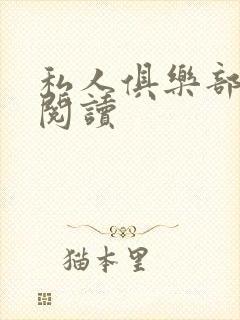 私人俱樂部
閱讀
猫本里